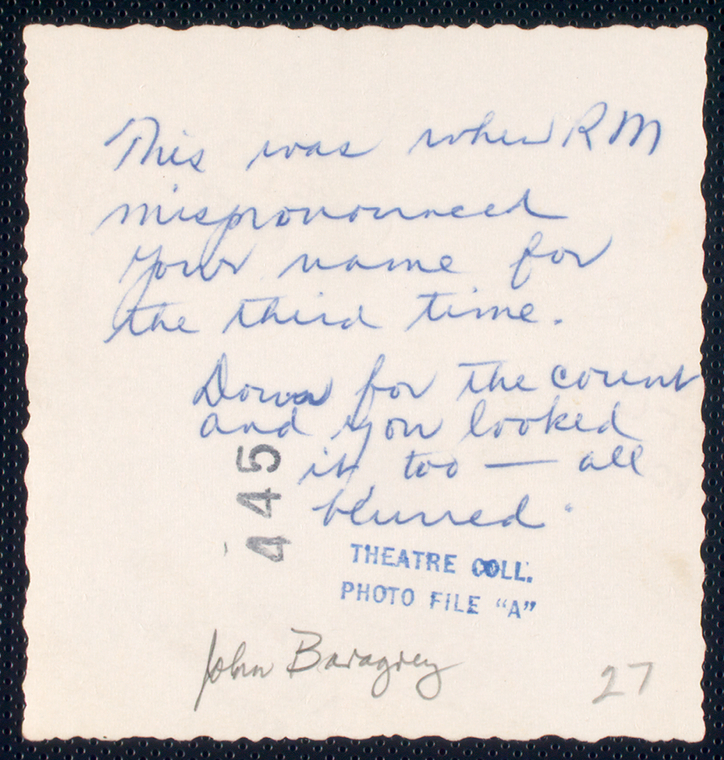 This was when RM
mispronounced
your name for
the third time.
Down for the count
and you looked
it, too — all
blurred.
445
THEATRE COLL.
PHOTO FILE "A"
John Baragrey
27